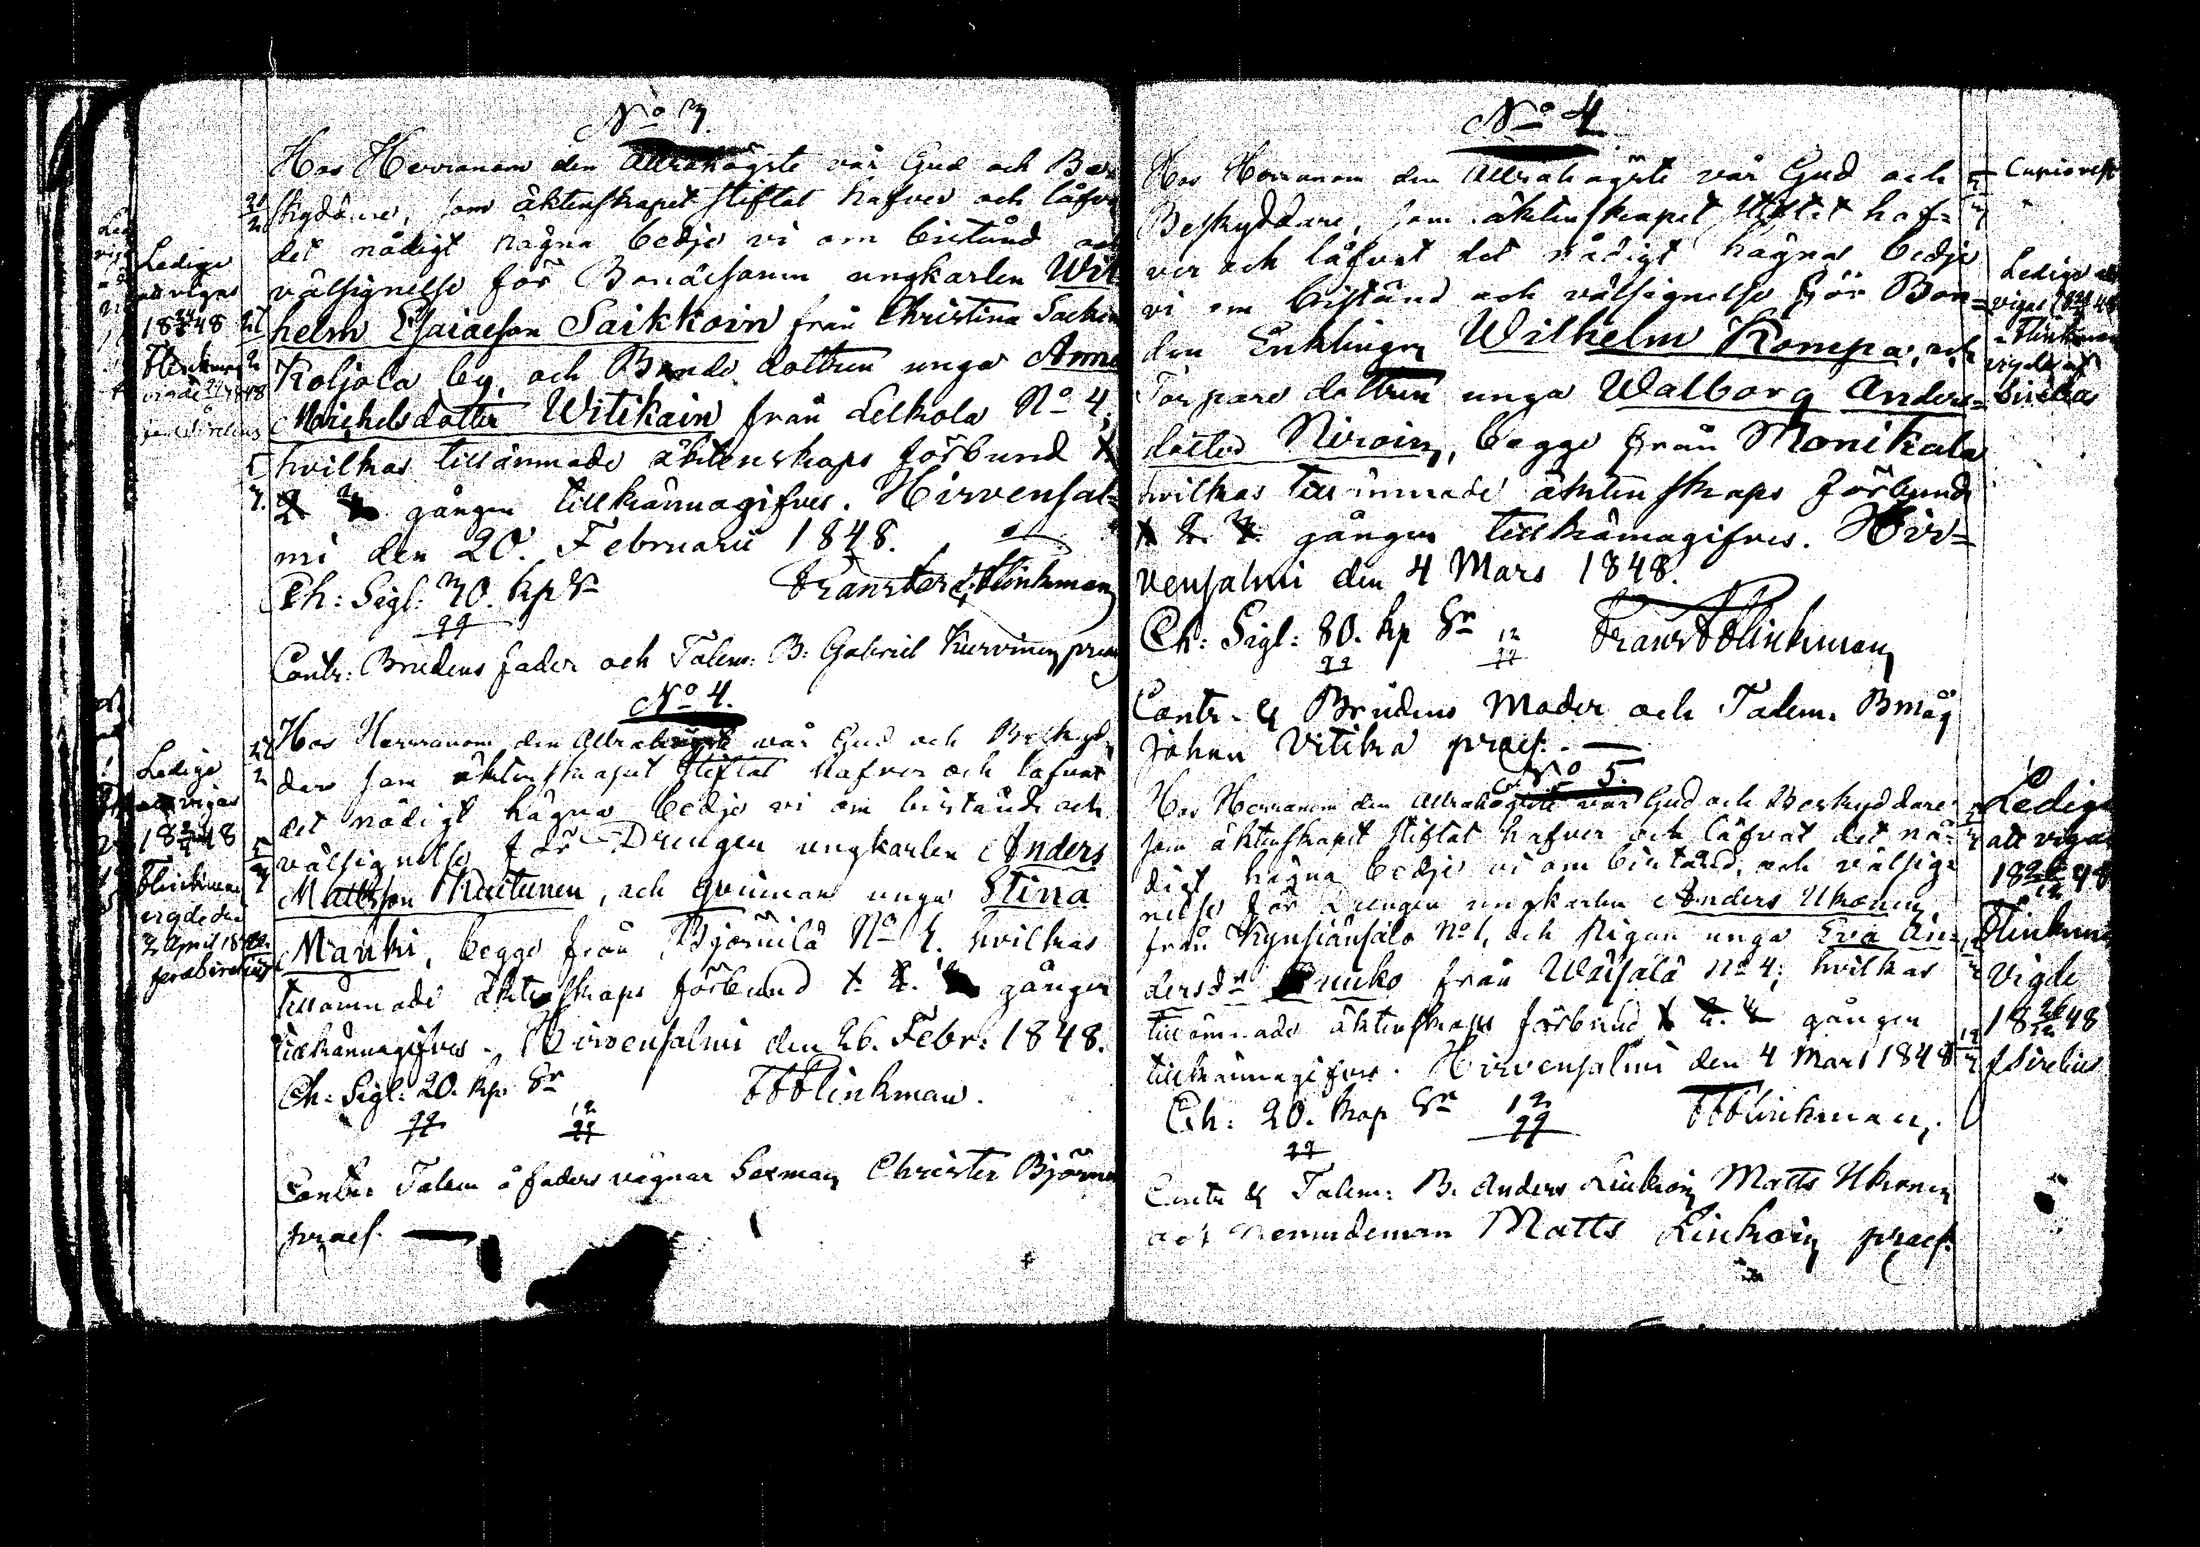 No 3
Hos Herranom den Allrahögste vår Gud och Be-
skyddare, som äktenskapet stiftat hafver och låfvat
det nådigt hägna bedje vi om bistånd och
välsignelse för Bondesonen ungkarlen Wil
helm Esaiaeson Saikkoin från Christina
Koljola by, och Bonde dottren unga Anna
Michelsdotter Witikain från Lelkola No 4,
hvilkas tillärnmade äktenskaps förbund 1
2 3 gången tillkännagifves. Hirvensal-
mi den 20. Februarii 1848.
Ch: Sigl: 30. kp Sr Frans Flinkman
Contr: Brudens fader och Talem: B: Gabriel Kurvinen
Ledige
att vigas
1848
Flinkman
No 4.
Hos Herranom den Allrahögste vår Gud och Beskyd
dare som äktenskapet stiftat hafver och låfvat
det nådigt hägna bedje vi om bistånd och
välsignelse för Drengen ungkarlen Anders
Mattsson Kaitunen, och qvinnan unga Stina
Manki, begge från Björnilä No hvilkas
tillärnnade äktenskaps förbund 1. 2. 3 gången
tillkännagifves. Hirvensalmi den 26. Febr: 1848.
Ch: Sigl: 20. kp Sr FFlinkman.
Contr: Talem å faders vägnar Sexman Christer Björn
praes.
Ledige
att vigas
1848
Flinkman
vigde den
2 April 1848.
No 4
Hos Herranom den Allrahögste vår Gud och
Beskyddare, som äktenskapet stiftat haf-
ver och låfvat det nådigt hägna bedje
vi om bistånd och välsignelse för Bon-
den Enklingen Wilhelm Kompa, och
Torpare dottren unga Walborg Anders-
dotter Niroin, begge från Monikala
hvilkas tillärnnade äktenskaps förbund
1 2 3 gången tillkännagifves. Hir-
vensalmi den 4 Mars 1848.
Ch: Sigl: 80. kp Sr Frans Flinkman
Contr. & Brudens Moder och Talem. Bmåg
Johan Vitika praes.
Ledige att
vigas 48
Flinkman
vigde af
Sirelius
No 5.
Hos Herranom den Allrahögste vår Gud och Beskyddare
som äktenskapet stiftat hafver och låfvat det nå-
digt hägna bedje vi om bistånd, och välsig-
nelse för Drengen ungkarlen Anders Ukonen
från Kynsiänsalo No 1, och Pigan unga Eva An-
dersdr från Waisala No 4; hvilkas
tillärnnade äktenskaps förbund 1 2. 3 gången
tillkännagifves. Hirvensalmi den 4 Mars 1848
Ch: 20. kop Sr FFlinkman.
Contr & Talem: B. Anders Liukoin Matts Ukonen
och Nemndeman Matts Liukoin praes.
Ledige
att vigas
1848
Flinkman
vigde
1848
Sirelius